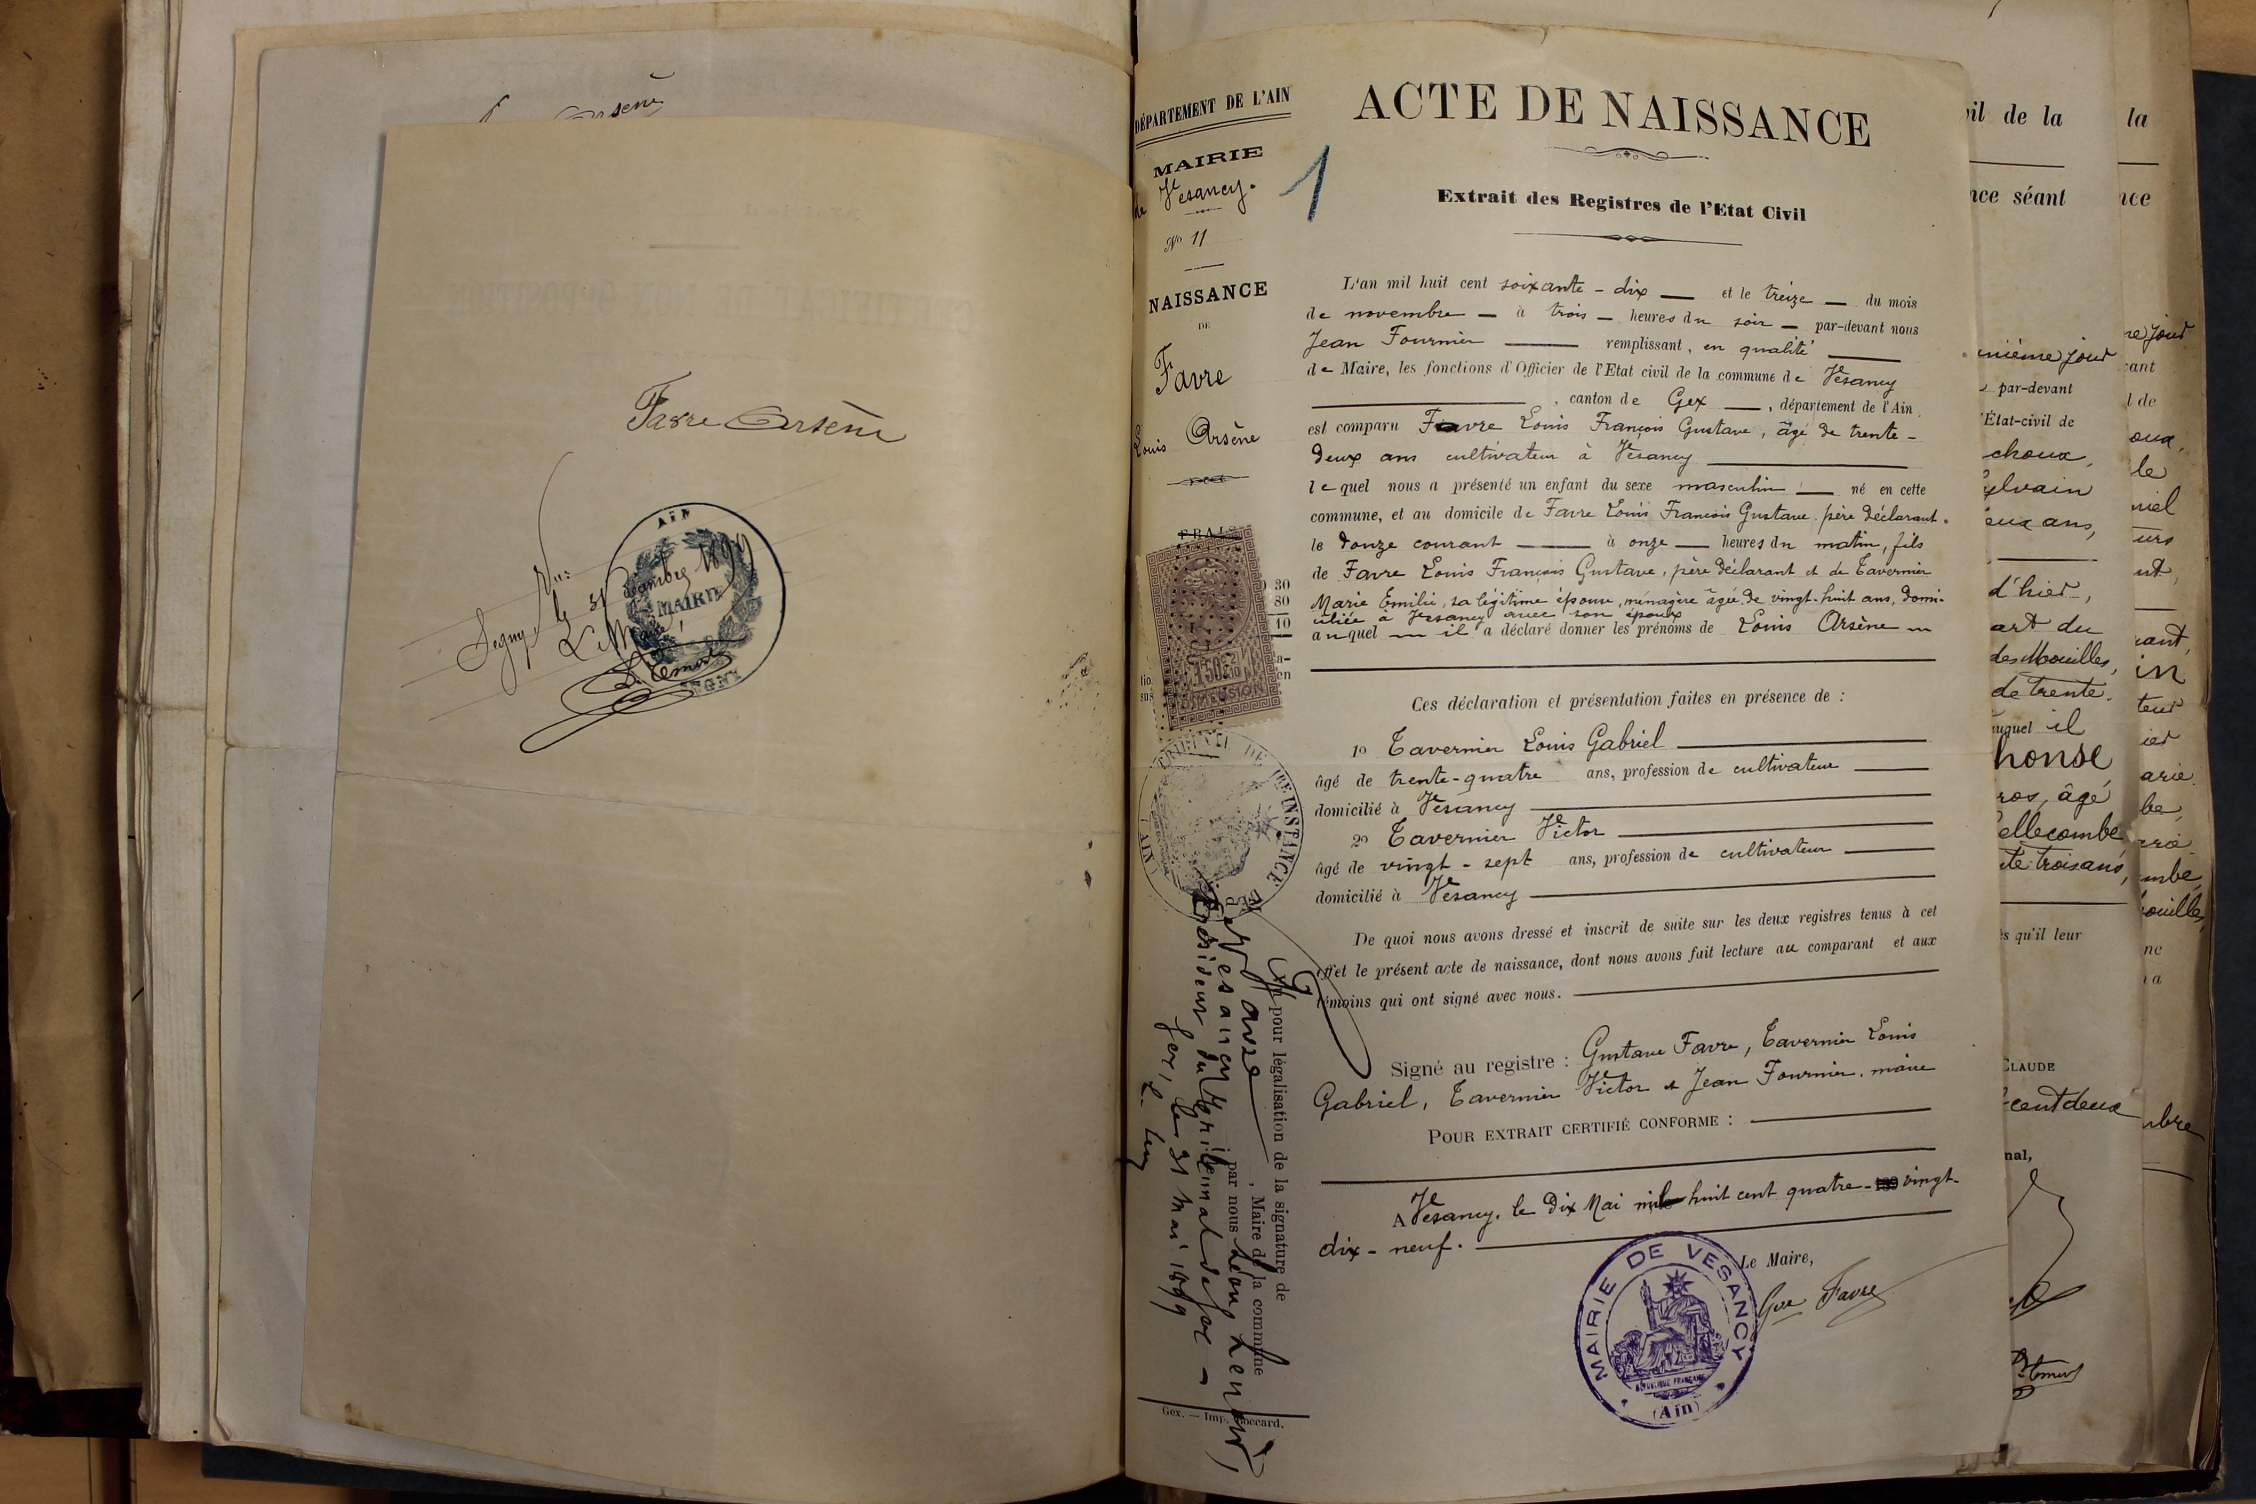 Arsène
Favre Arsène
Vu:
Segny le 31 décembre 1899
Le Maire,
AIN
MAIRIE
SEGNY
DÉPARTEMENT DE L'AIN
MAIRIE
de Vesancy.
No 11
NAISSANCE
DE
Favre
Louis Arsène
FRAIS
30
80
10
DIMENSION
TRIBUNAL DE 1RE INSTANCE
AIN
Vu pour légalisation de la signature de
M Favre, Maire de la commune
de Vesancy par nous
Président du tribunal de Gex
Gex, le 31 Mai 1899
Gex. — Imp. Boccard.
1
ACTE DE NAISSANCE
Extrait des Registres de l'Etat Civil
L'an mil huit cent soixante-dix — et le treize — du mois
de novembre — à trois — heures du soir — par-devant nous
Jean Fournier — remplissant, en qualité —
de Maire, les fonctions d'Officier de l'Etat civil de la commune de Vesancy
—, canton de Gex —, département de l'Ain
est comparu Favre Louis François Gustave, âgé de trente-
deux ans cultivateur à Vesancy —
lequel nous a présenté un enfant du sexe masculin — né en cette
commune, et au domicile de Favre Louis François Gustave, père déclarant.
le douze courant — à onze — heures du matin, fils
de Favre Louis François Gustave, père déclarant et de Tavernier
Marie Emilie, sa légitime épouse, ménagère âgée de vingt-huit ans, domi-
ciliée à Vesancy avec son époux
auquel — il a déclaré donner les prénoms de Louis Arsène —
Ces déclaration et présentation faites en présence de :
1o Tavernier Louis Gabriel —
âgé de trente-quatre ans, profession de cultivateur —
domicilié à Vesancy —
2o Tavernier Victor —
âgé de vingt-sept ans, profession de cultivateur —
domicilié à Vesancy —
De quoi nous avons dressé et inscrit de suite sur les deux registres tenus à cet
effet le présent acte de naissance, dont nous avons fait lecture au comparant et aux
témoins qui ont signé avec nous. —
Signé au registre : Gustave Favre, Tavernier Louis
Gabriel, Tavernier Victor et Jean Fournier, maire
POUR EXTRAIT CERTIFIÉ CONFORME : —
A Vesancy, le Dix Mai mil huit cent quatre-vingt-
dix-neuf. —
Le Maire,
Gve Favre
MAIRIE DE VESANCY
RÉPUBLIQUE FRANÇAISE
(Ain)
de la
nce séant
par-devant
État-civil de
choux,
ans,
d'hier,
art du
des Mouilles,
de trente
auquel il
âgé
ellecombe
trois ans,
qu'il leur
CLAUDE
cent deux
la
nce